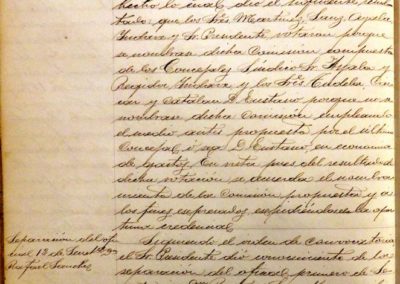 hecho lo cual, dió el siguiente resul-
tado: que los Sres. Martinez, Sanz, Ayala
Inchaza y Sr. Presidente votaron porque
se nombrase dicha Comision compuesta
de los Concejales Síndico Sr. Ayala y
Regidor Inchaza y los Sres. Eudelia
y Catalan D. Eustasio porque no se
nombrase dicha comision empleando
el medio antes propuesto por el último
Concejal ó sea D. Eustasio, en economia
de gastos. En vista pues del resultado de
dicha votacion se acuerda el nombra-
miento de la Comision propuesta y a
los fines expresados expidiendose la opor-
tuna credencial.
Separacion del ofi-
cial 1º de Secret.
Rafael
Siguiendo el orden de convocatoria
el Sr. Presidente dió conocimiento de la
separacion del oficial primero de Se-